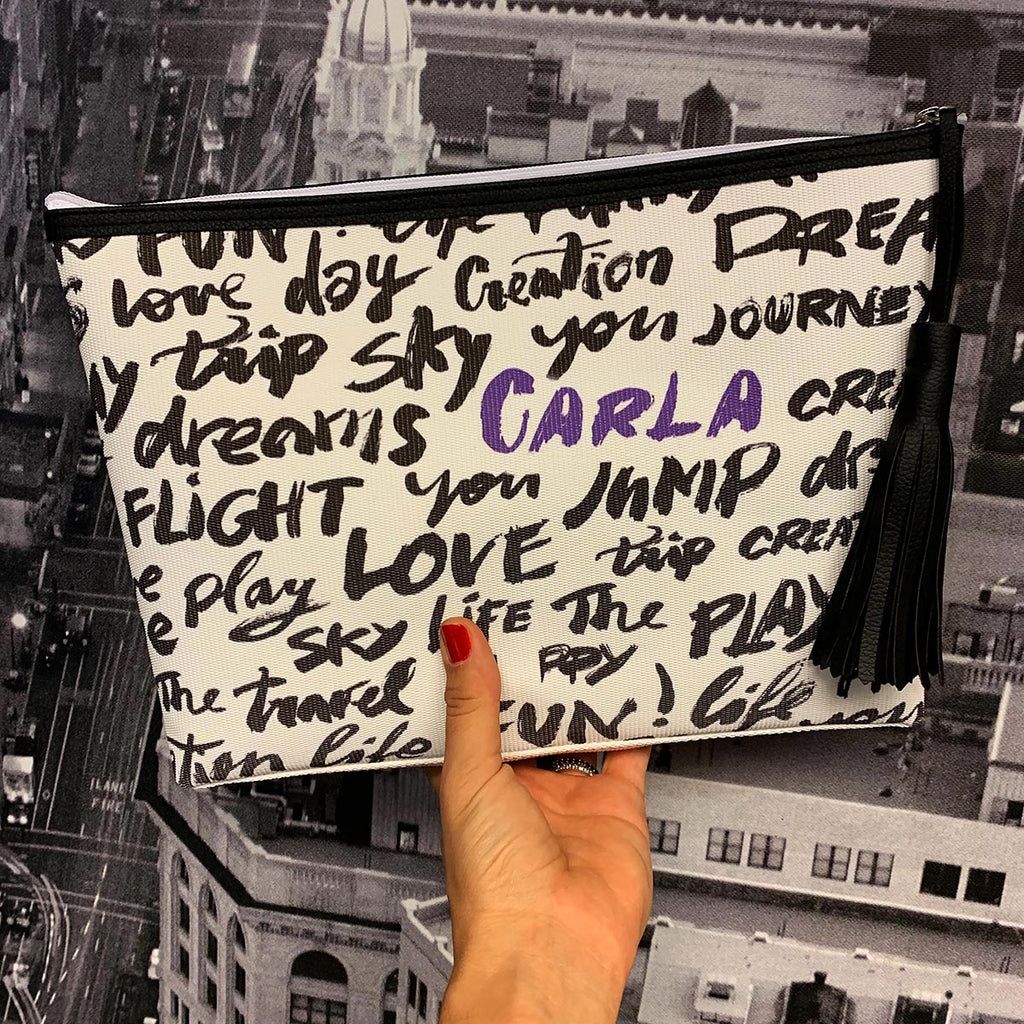 FUN! life funny
love day Creation DREA
trip sky you JOURNEY
dreams CARLA CREA
FLiGHT you JUMP dre
e play LOVE trip CREAT
e SKY LiFE The PLAY
The travel ppy
tion life FUN! life you
LANE
FIRE